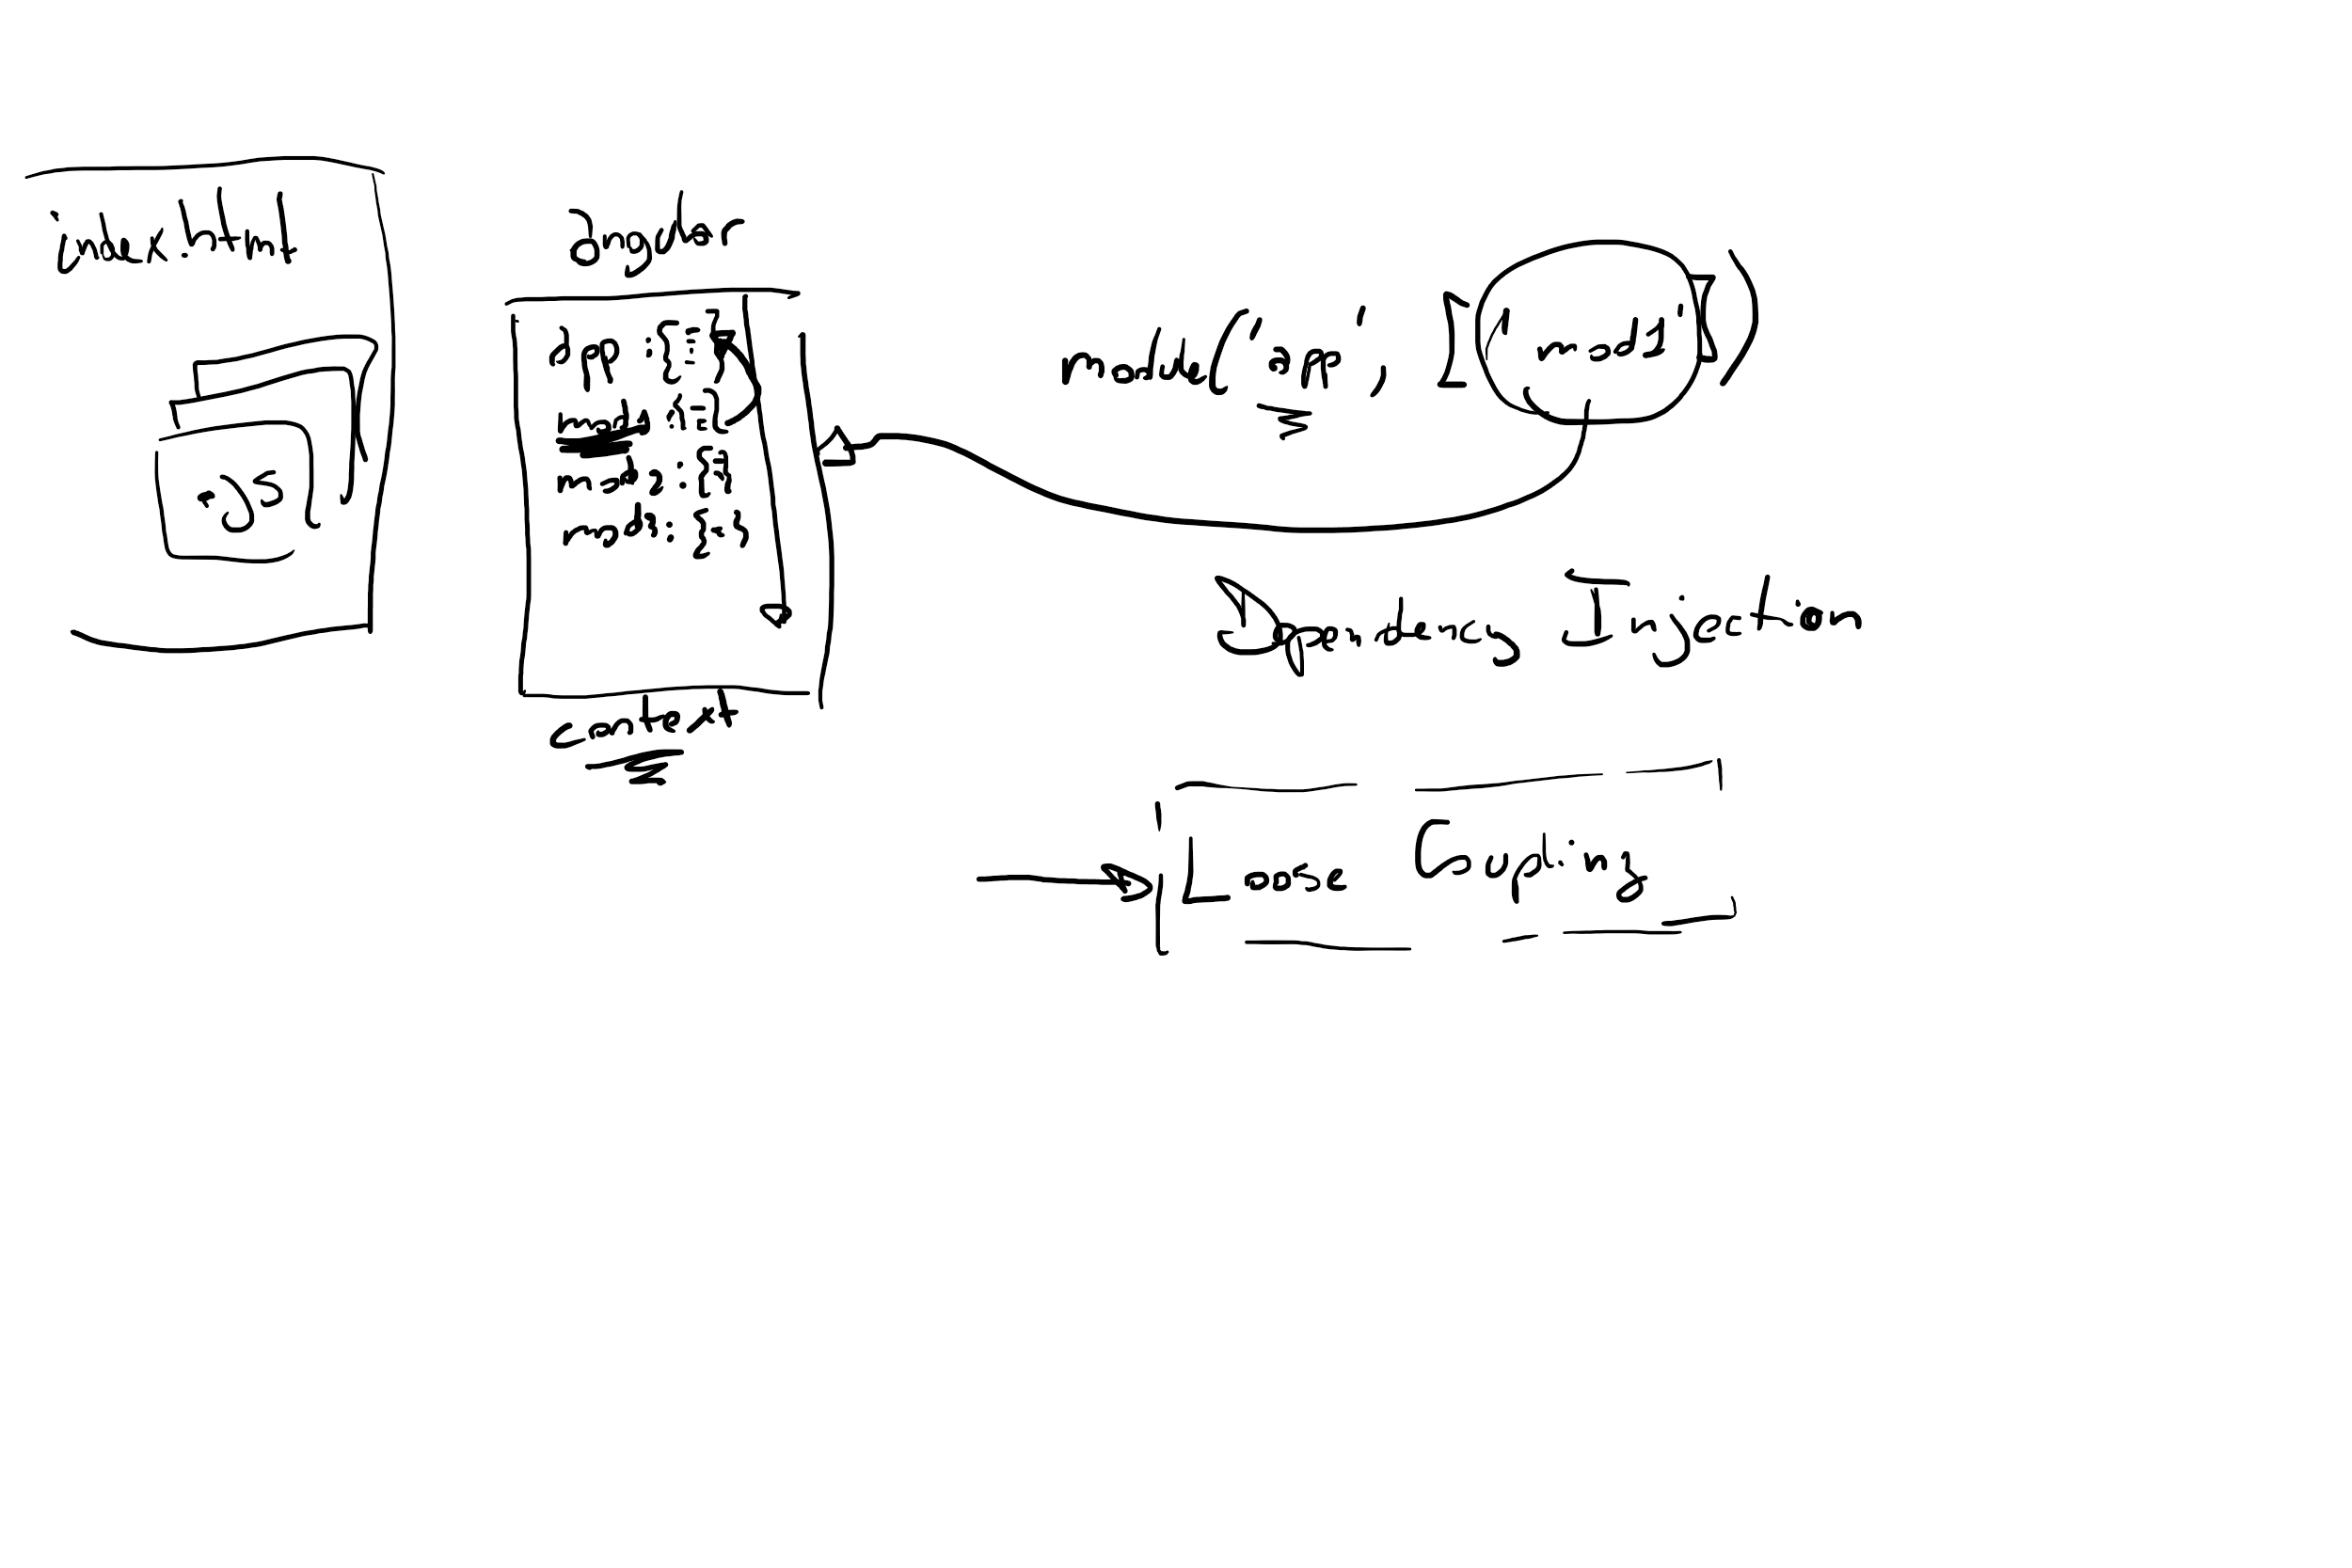 index.html
.js
angular
app : { }
mod1 : { }
mod2 : { }
mod3 : { }
context
module('app', ['mod1'])
Dependency Injection
Loose Coupling